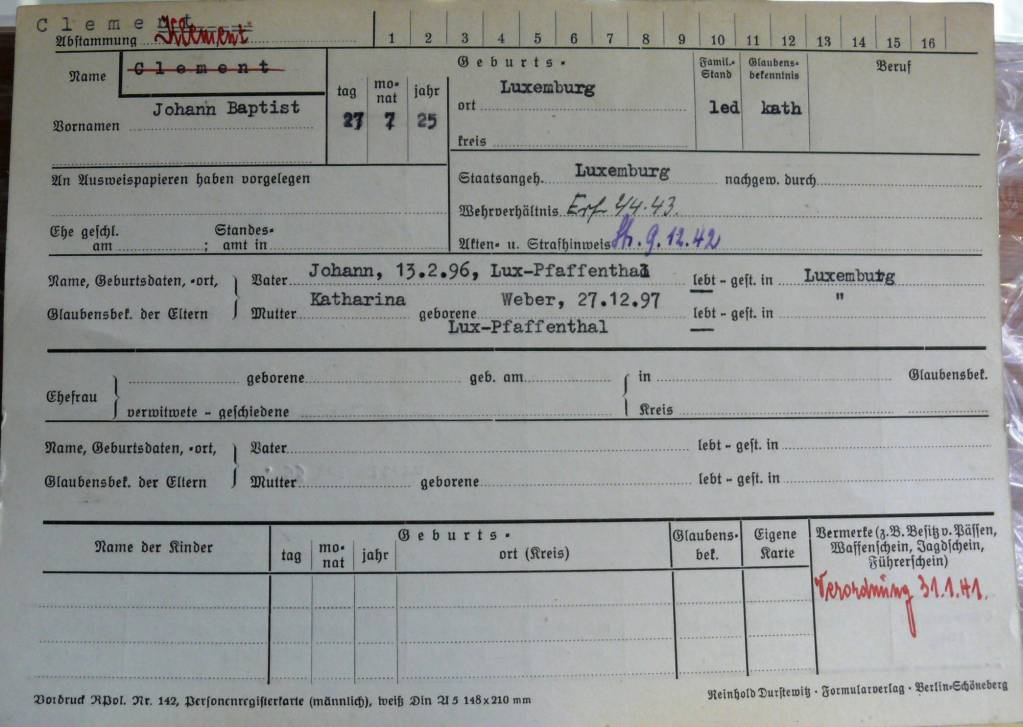 Clement
Abstammung Klement
1 2 3 4 5 6 7 8 9 10 11 12 13 14 15 16
Name Clement tag mo-nat jahr Geburts- Famil.-Stand Glaubens-bekenntnis Beruf
ort Luxemburg
Vornamen Johann Baptist 27 7 25 led kath
kreis
An Ausweispapieren haben vorgelegen Staatsangeh. Luxemburg nachgew. durch
Wehrverhältnis Erf 4.43.
Ehe geschl. am ; Standes-amt in Akten- u. Strafhinweis 9.12.42
Name, Geburtsdaten, -ort, Vater Johann, 13.2.96, Lux-Pfaffenthal lebt - gest. in Luxemburg
Glaubensbek. der Eltern Mutter Katharina geborene Weber, 27.12.97 lebt - gest. in "
Lux-Pfaffenthal
geborene geb. am in Glaubensbek.
Ehefrau
verwitwete - geschiedene Kreis
Name, Geburtsdaten, -ort, Vater lebt - gest. in
Glaubensbek. der Eltern Mutter geborene lebt - gest. in
Name der Kinder Geburts- Glaubens-bek. Eigene Karte Vermerke (z.B. Besitz v. Pässen,
Waffenschein, Jagdschein,
tag mo-nat jahr ort (Kreis) Führerschein)
Verordnung 31.1.41.
Vordruck RPol. Nr. 142, Personenregisterkarte (männlich), weiß Din A5 148x210 mm
Reinhold Durstewitz · Formularverlag · Berlin-Schöneberg